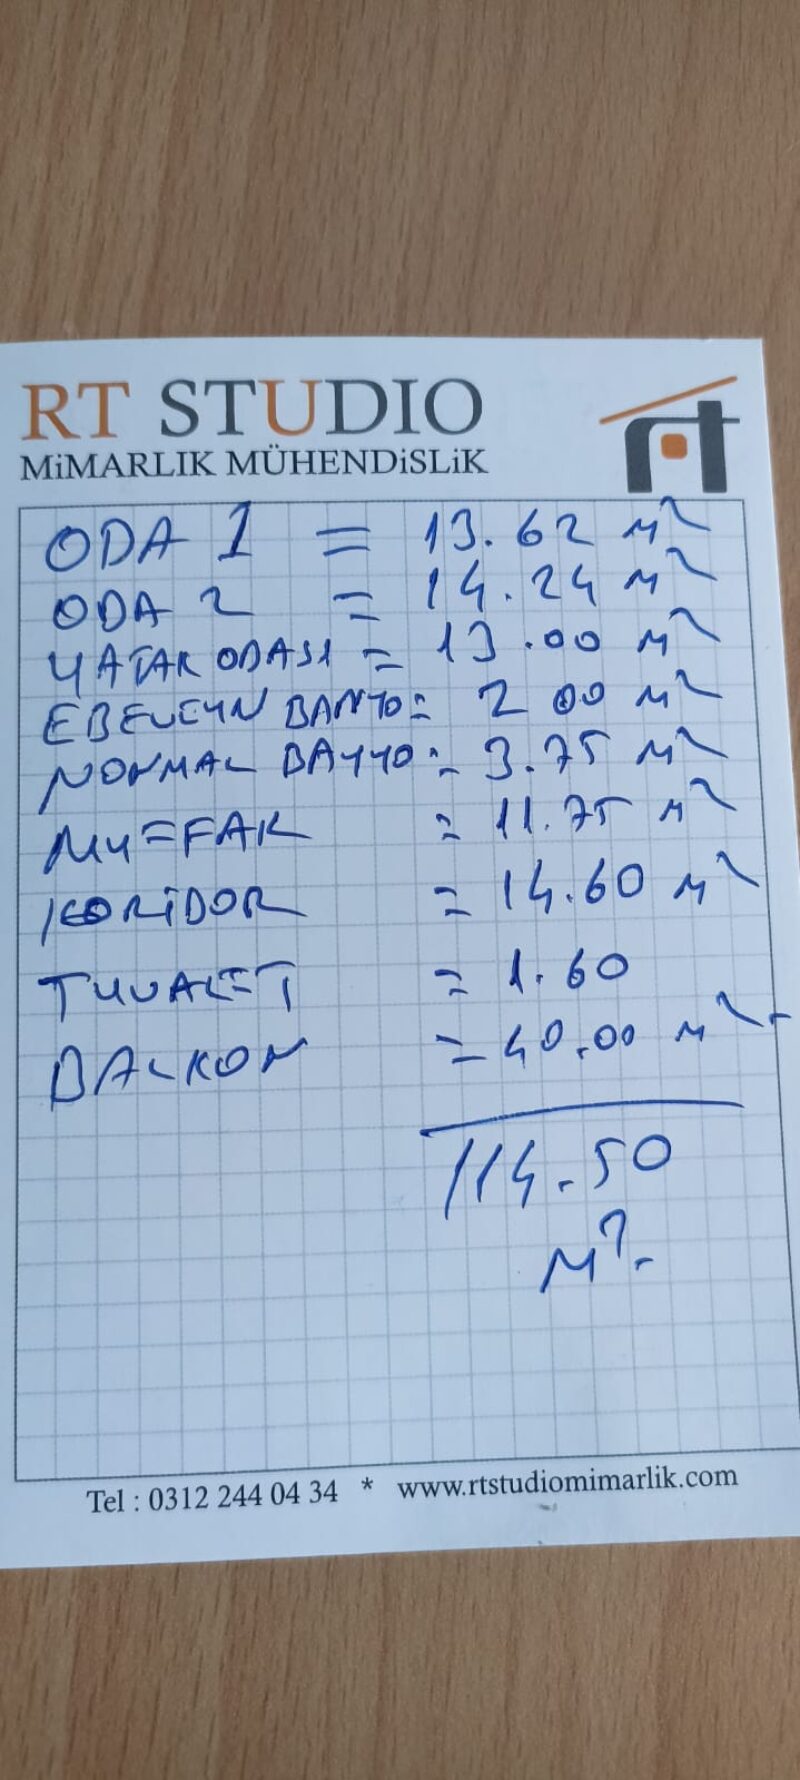 RT STUDIO
MiMARLIK MÜHENDiSLiK
ODA 1 = 13.62 M²
ODA 2 = 14.24 M²
YATAK ODASI = 13.00 M²
EBEVEYN BANYO = 2 00 M²
NORMAL BAYYO = 3.75 M²
MUTFAK = 11.75 M²
KORİDOR = 14.60 M²
TUVALET = 1.60
BALKON = 40.00 M² +
114.50
M².
Tel : 0312 244 04 34 * www.rtstudiomimarlik.com